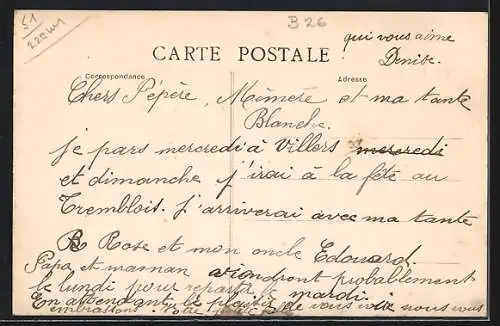 51
22ème
B 26
qui vous aime
Denise.
CARTE POSTALE
Correspondance
Adresse
Chers Pépère, Mémère et ma tante
Blanche.
Je pars mercredi à Villers mercredi
et dimanche j'irai à la fête au
Tremblois. J'arriverai avec ma tante
R Rose et mon oncle Edouard.
Papa et maman viendront probablement
le lundi pour repartir le mardi.
En attendant le plaisir de vous voir nous vous
embrassons. Votre